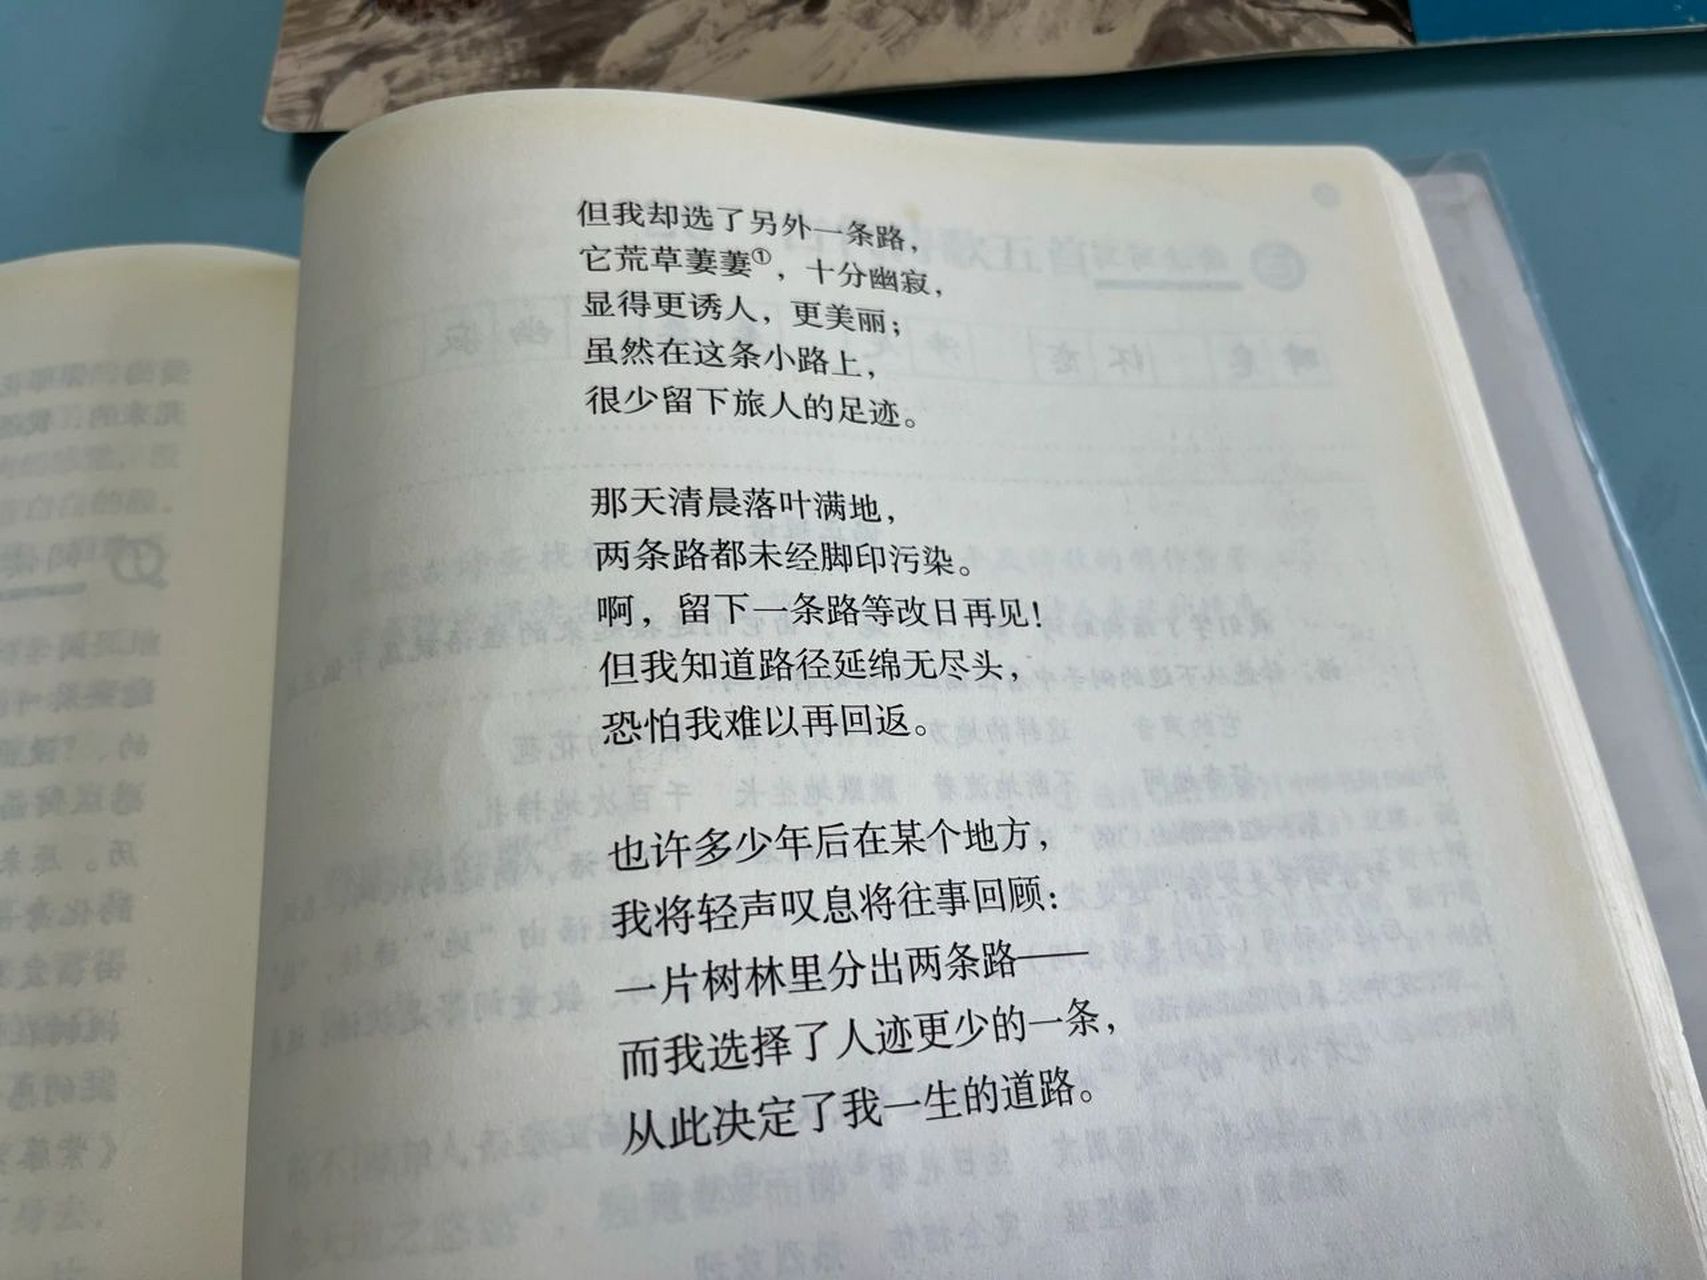 但我却选了另外一条路，
它荒草萋萋①，十分幽寂，
显得更诱人，更美丽；
虽然在这条小路上，
很少留下旅人的足迹。
那天清晨落叶满地，
两条路都未经脚印污染。
啊，留下一条路等改日再见！
但我知道路径延绵无尽头，
恐怕我难以再回返。
也许多少年后在某个地方，
我将轻声叹息将往事回顾：
一片树林里分出两条路——
而我选择了人迹更少的一条，
从此决定了我一生的道路。